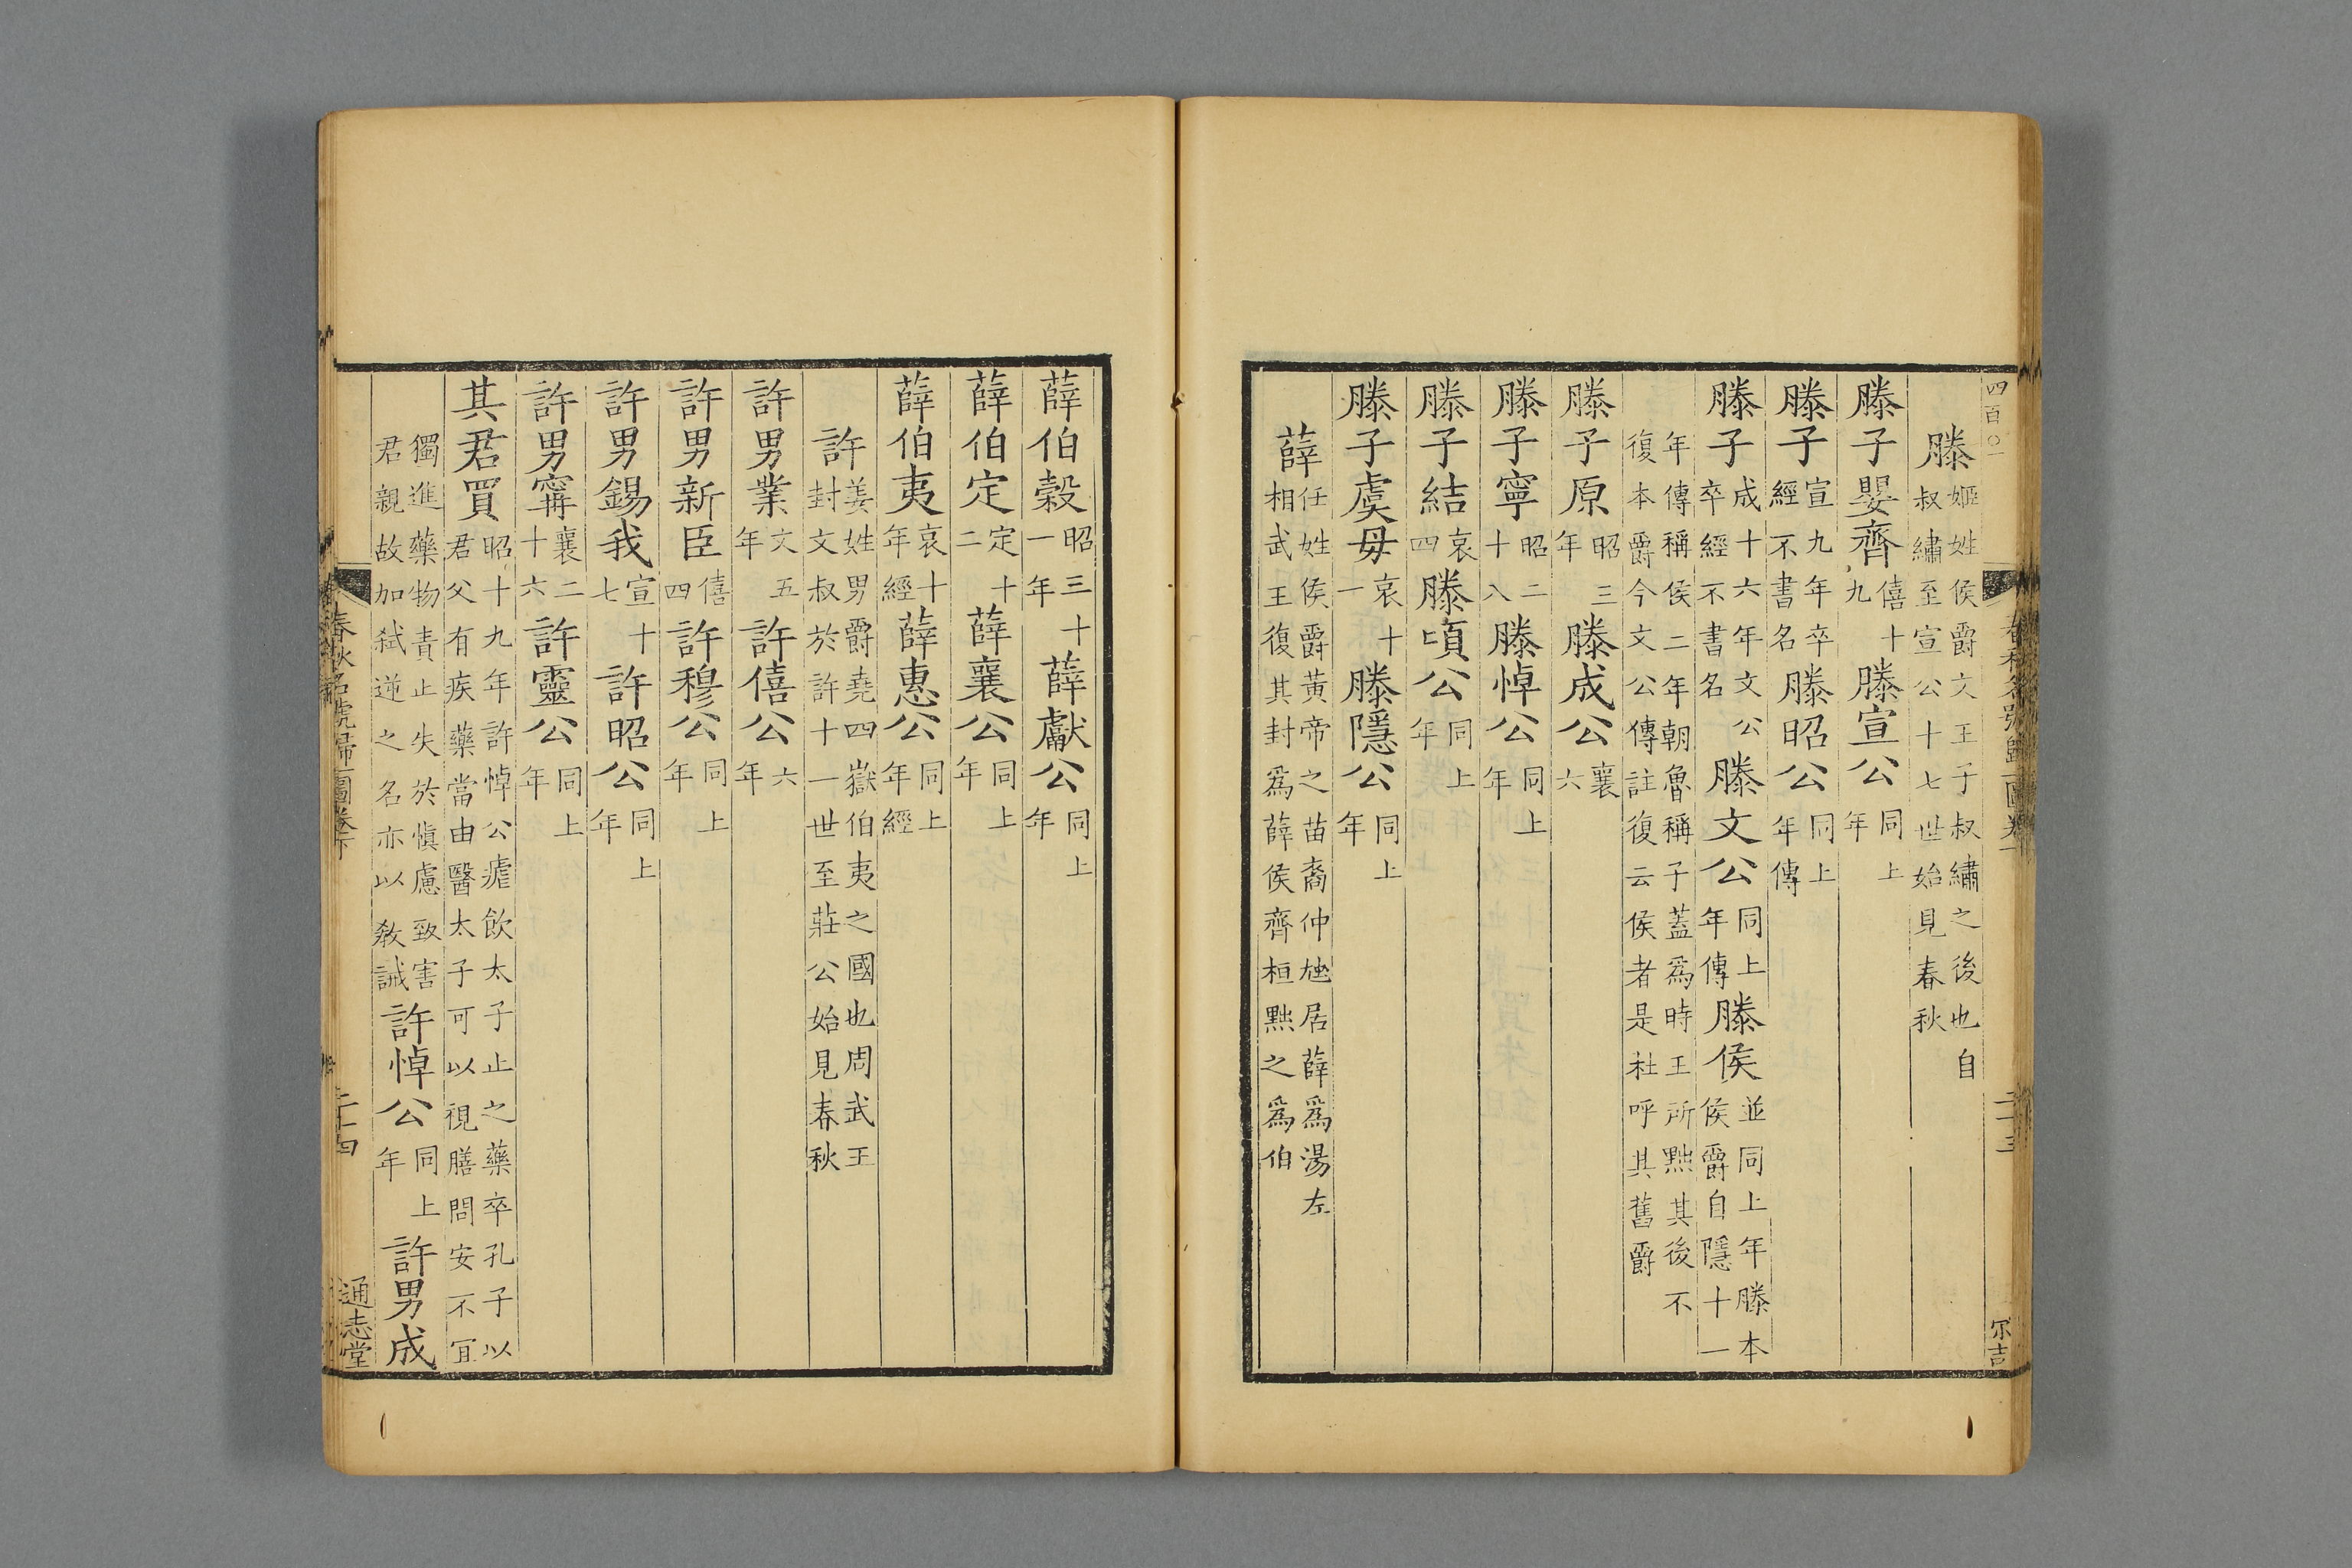 四百○一
春秋名號歸一圖卷下
二十三
尔吉
滕姬姓侯爵文王子叔繡之後也自叔繡至宣公十七世始見春秋
滕子嬰齊僖十九滕宣公同上年
滕子宣九年卒經不書名滕昭公同上年傳
滕子成十六年文公卒經不書名滕文公同上年傳滕侯並同上年滕本侯爵自隱十一
年傳稱侯二年朝魯稱子蓋為時王所黜其後不復本爵今文公傳註復云侯者是杜呼其舊爵
滕子原昭三年滕成公襄六
滕子寧昭二十八滕悼公同上年
滕子結哀四滕頃公同上年
滕子虞毋哀十一滕隱公同上年
薛任姓侯爵黃帝之苗裔仲虺居薛為湯左相武王復其封為薛侯齊桓黜之為伯
薛伯穀昭三十一年薛獻公同上年
薛伯定定十二薛襄公同上年
薛伯夷哀十年經薛惠公同上年經
許姜姓男爵堯四嶽伯夷之國也周武王封文叔於許十一世至莊公始見春秋
許男業文五年許僖公六年
許男新臣僖四許穆公同上年
許男錫我宣十七許昭公同上年
許男甯襄二十六許靈公同上年
其君買昭十九年許悼公瘧飲太子止之藥卒孔子以君父有疾藥當由醫太子可以視膳問安不冝
獨進藥物責止失於慎慮致害君親故加弒逆之名亦以教誡許悼公同上年許男成
春秋名號歸一圖卷下
二十四
通志堂